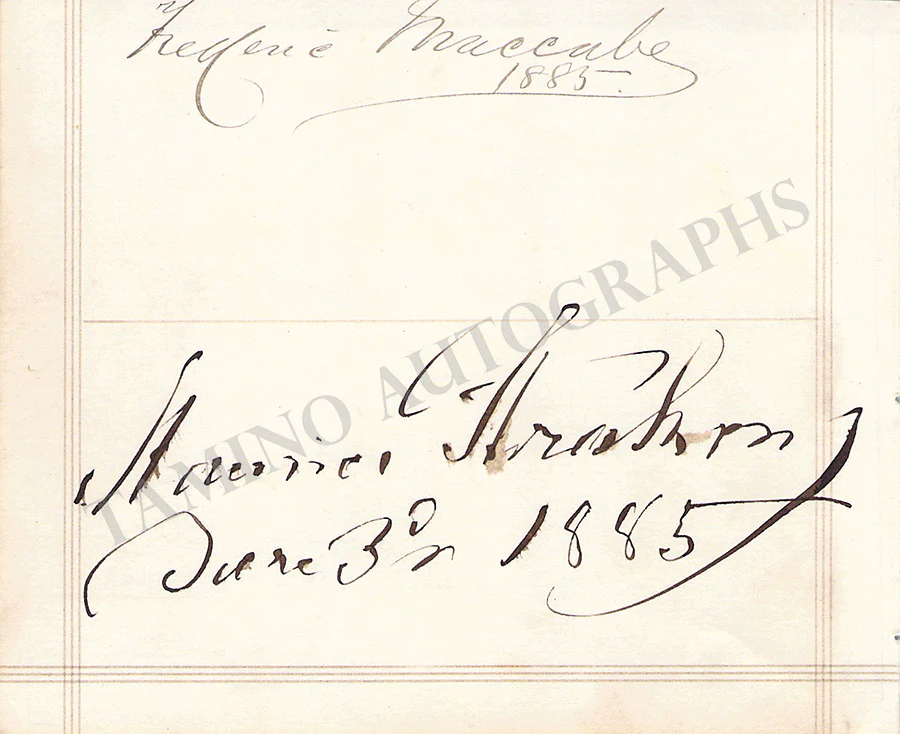 Frederic Maccabe
1885.
TAMINO AUTOGRAPHS
Maurice Strakosch
June 3d 1885